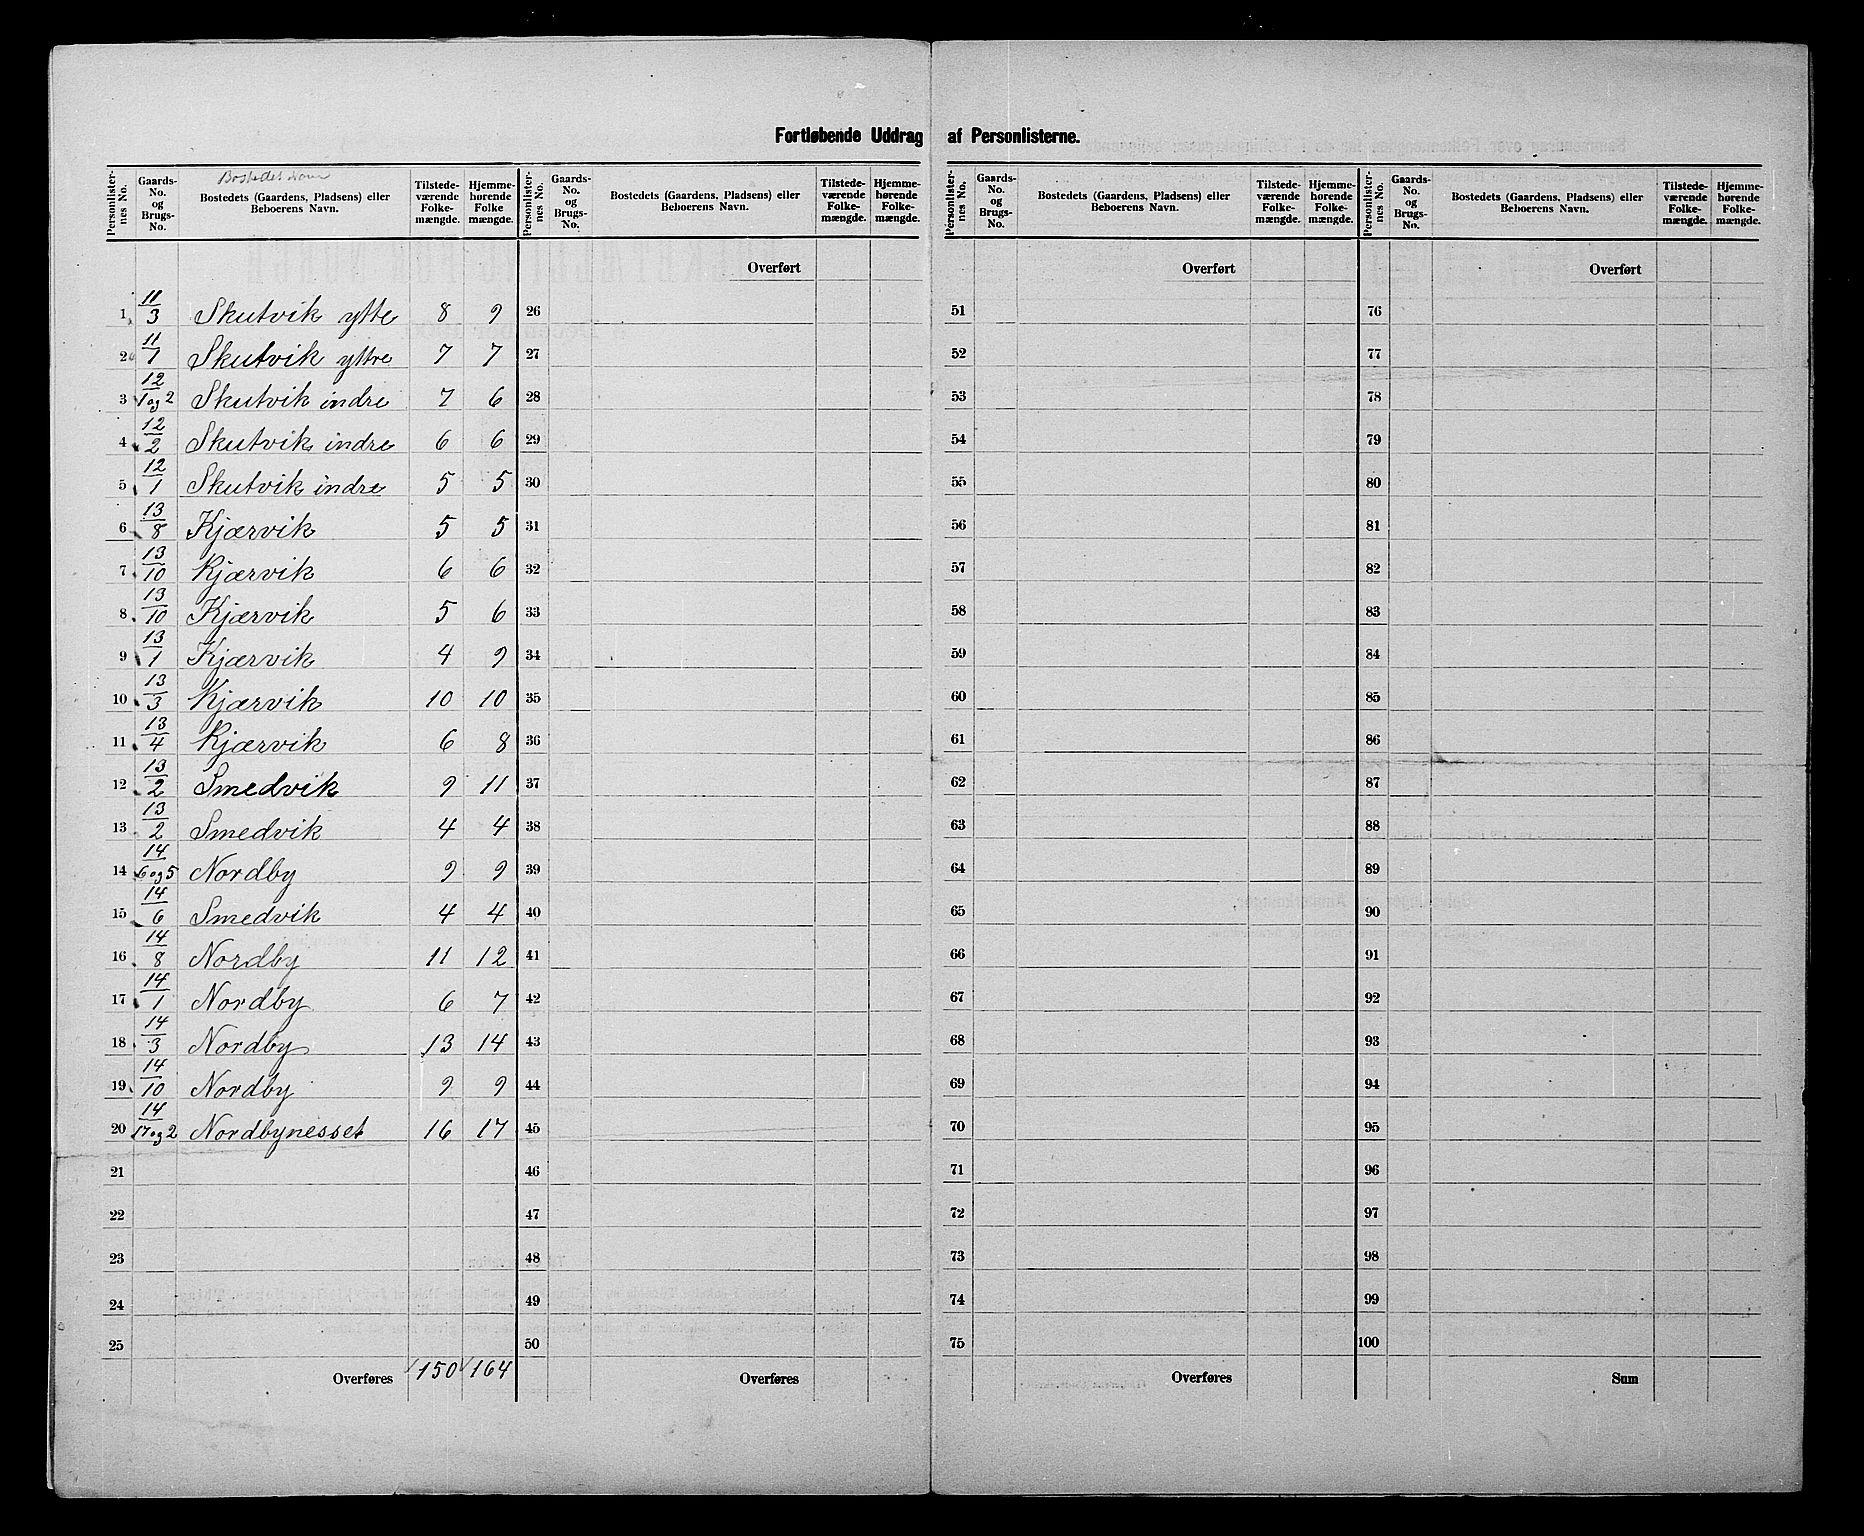 Fortløbende Uddrag af Personlisterne.
Personlister-nes No. | Gaards-No. og Brugs-No. | Bostedets (Gaardens, Pladsens) eller Beboerens Navn. | Tilstede-værende Folke-mængde. | Hjemme-hørende Folke mængde.
Personlister-nes No. | Gaards-No. og Brugs-No. | Bostedets (Gaardens, Pladsens) eller Beboerens Navn. | Tilstede-værende Folke-mængde. | Hjemme-hørende Folke-mængde.
Personlister-nes No. | Gaards-No. og Brugs-No. | Bostedets (Gaardens, Pladsens) eller Beboerens Navn. | Tilstede-værende Folke-mængde. | Hjemme-hørende Folke-mængde.
Personlister-nes No. | Gaards-No. og Brugs-No. | Bostedets (Gaardens, Pladsens) eller Beboerens Navn. | Tilstede-værende Folke-mængde. | Hjemme-hørende Folke-mængde.
Overført Overført Overført
1 11/3 Skutvik ytte 8 9 26 51 76
2 11/1 Skutvik yttre 7 7 27 52 77
3 12/1 og 2 Skutvik indre 7 6 28 53 78
4 12/2 Skutvik indre 6 6 29 54 79
5 12/1 Skutvik indre 5 5 30 55 80
6 13/8 Kjærvik 5 5 31 56 81
7 13/10 Kjærvik 6 6 32 57 82
8 13/10 Kjærvik 5 6 33 58 83
9 13/1 Kjærvik 4 9 34 59 84
10 13/3 Kjærvik 10 10 35 60 85
11 13/4 Kjærvik 6 8 36 61 86
12 13/2 Smedvik 9 11 37 62 87
13 13/2 Smedvik 4 4 38 63 88
14 14/6 og 5 Nordby 9 9 39 64 89
15 14/6 Smedvik 4 4 40 65 90
16 14/8 Nordby 11 12 41 66 91
17 14/1 Nordby 6 7 42 67 92
18 14/3 Nordby 13 14 43 68 93
19 14/10 Nordby 9 9 44 69 94
20 14/17 og 2 Nordbynesset 16 17 45 70 95
21 46 71 96
22 47 72 97
23 48 73 98
24 49 74 99
25 50 75 100
Overføres 150 164 Overføres Overføres Sum